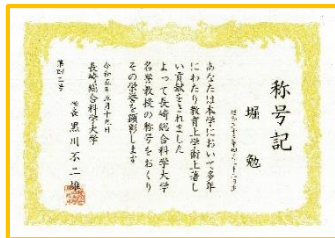 称号記
堀 勉
あなたは本学において多年
にわたり教育上学術上著し
い貢献をされました
よって長崎総合科学大学
名誉教授の称号をおくり
その栄誉を顕彰します
長崎総合科学大学
学長 黒川不二雄